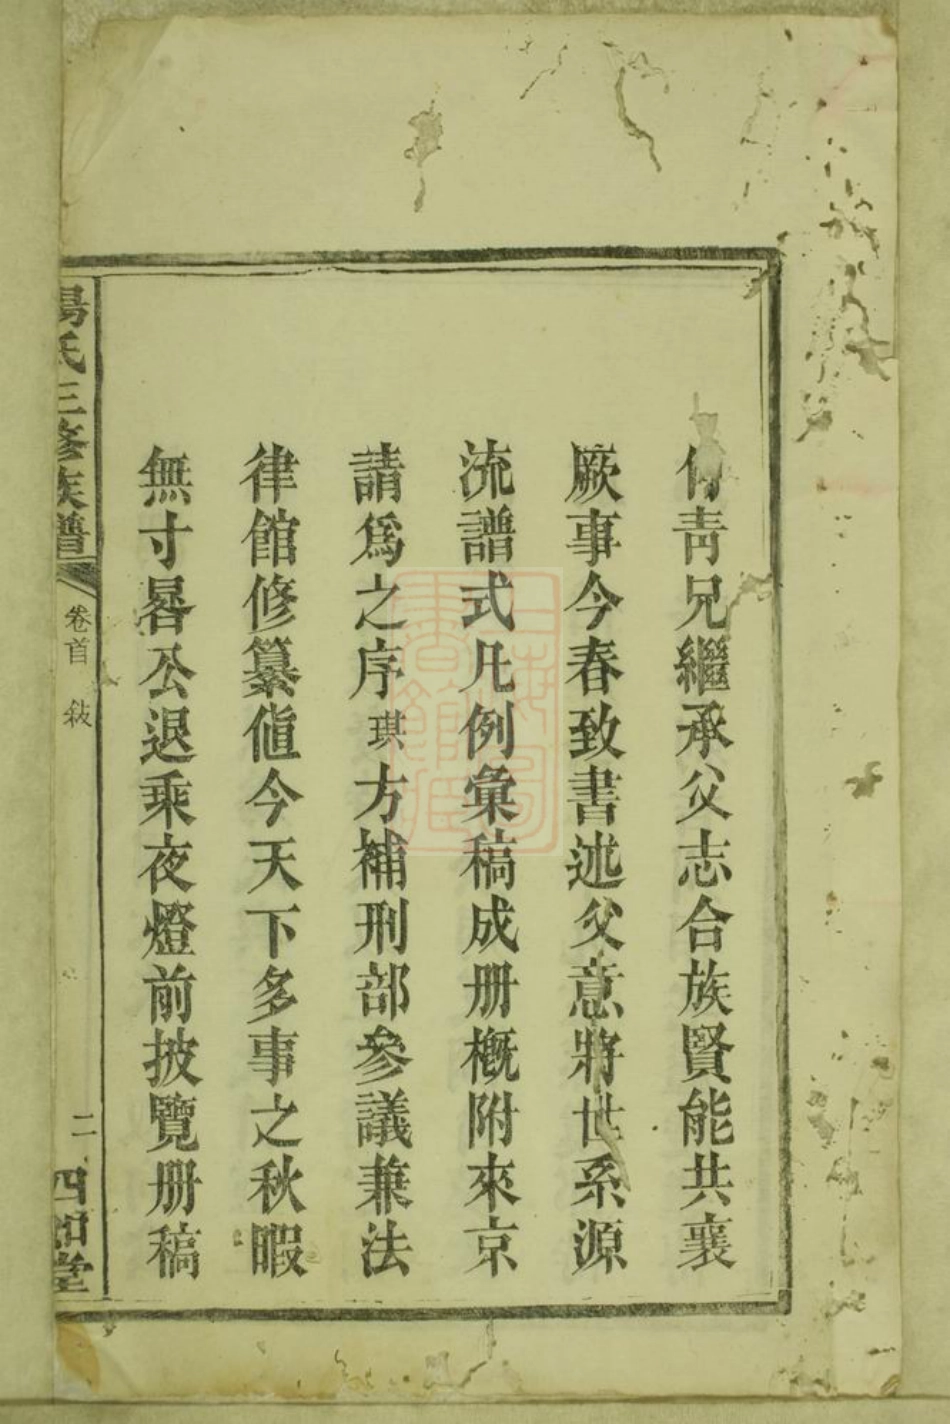 青兄繼承父志合族賢能共襄
厥事今春致書述父意將世系源
流譜式凡例彙稿成册槪附來京
請爲之序琪方補刑部參議兼法
律館修纂値今天下多事之秋暇
無寸晷公退乘夜燈前披覽册稿
楊氏三修族譜
卷首 敍
二
四知堂